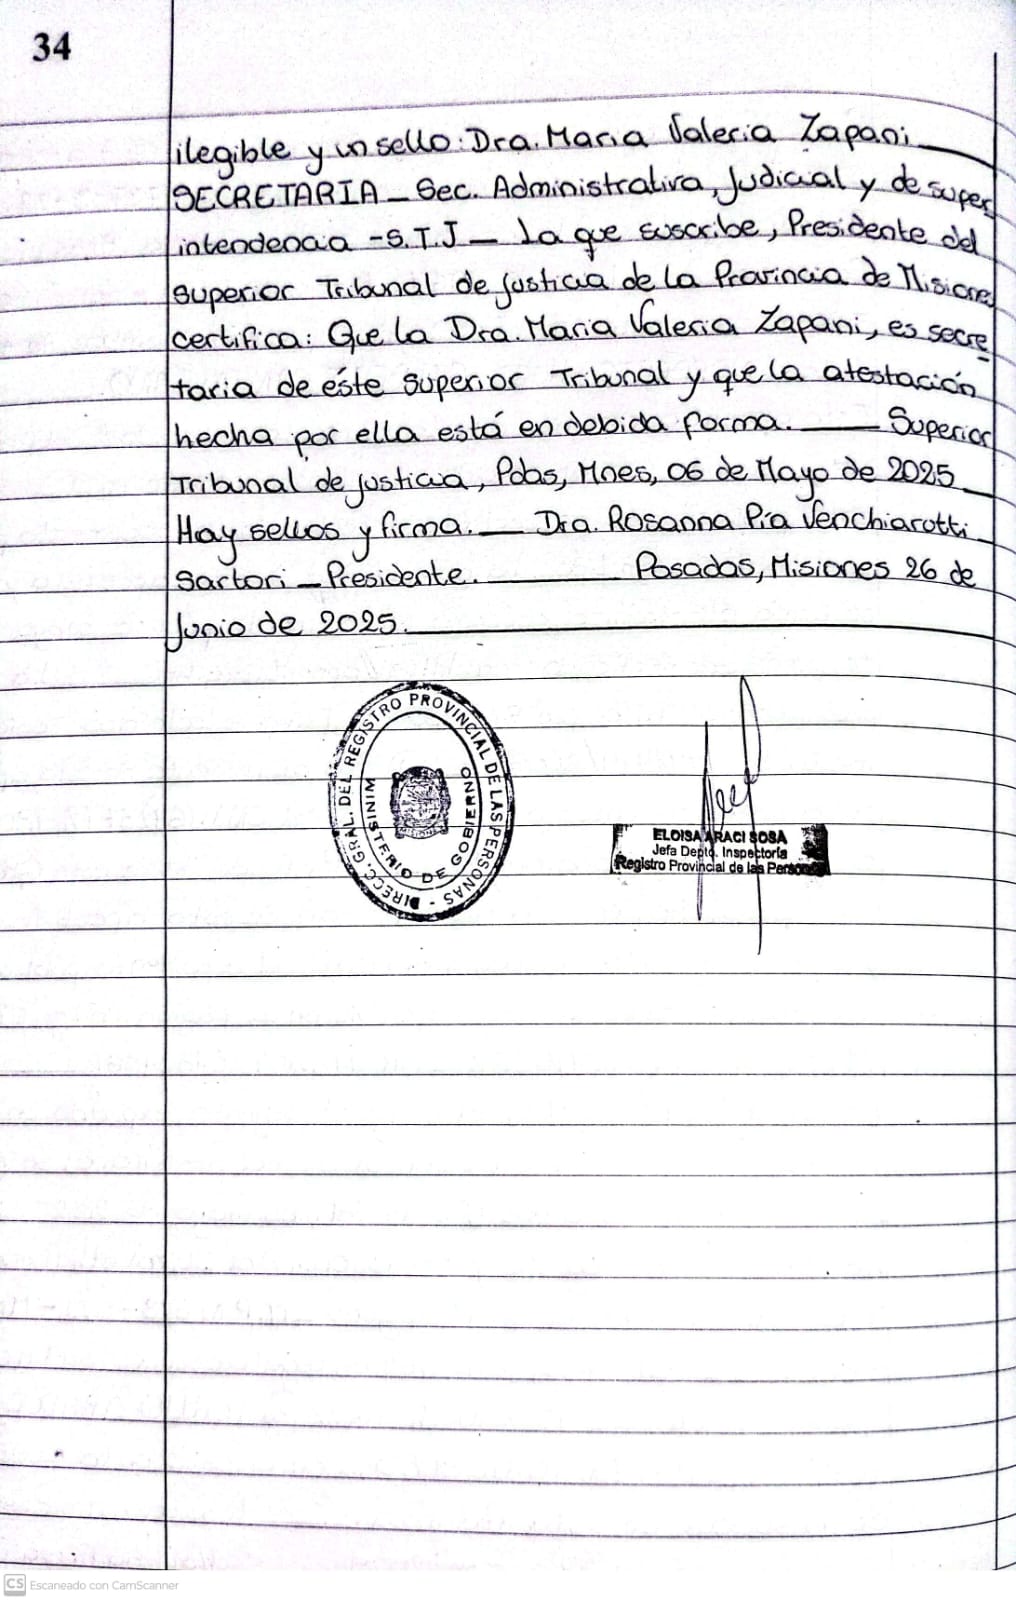 34
ilegible y un sello: Dra. Maria Valeria Zapani
SECRETARIA - Sec. Administrativa, Judicial y de super
intendencia - S.T.J - La que suscribe, Presidente del
Superior Tribunal de Justicia de la Provincia de Misiones
certifica: Que la Dra. Maria Valeria Zapani, es secre
taria de éste Superior Tribunal y que la atestación
hecha por ella está en debida forma. — Superior
Tribunal de Justicia, Pdas, Mnes, 06 de Mayo de 2025
Hay sellos y firma. — Dra. Rosanna Pía Venchiarotti
Sartori - Presidente. — Posadas, Misiones 26 de
Junio de 2025.
DIRECC. GRAL. DEL REGISTRO PROVINCIAL DE LAS PERSONAS -
MINISTERIO DE GOBIERNO
MISIONES
ELOISA ARACI SOSA
Jefa Depto. Inspectoría
Registro Provincial de las Personas
CS Escaneado con CamScanner